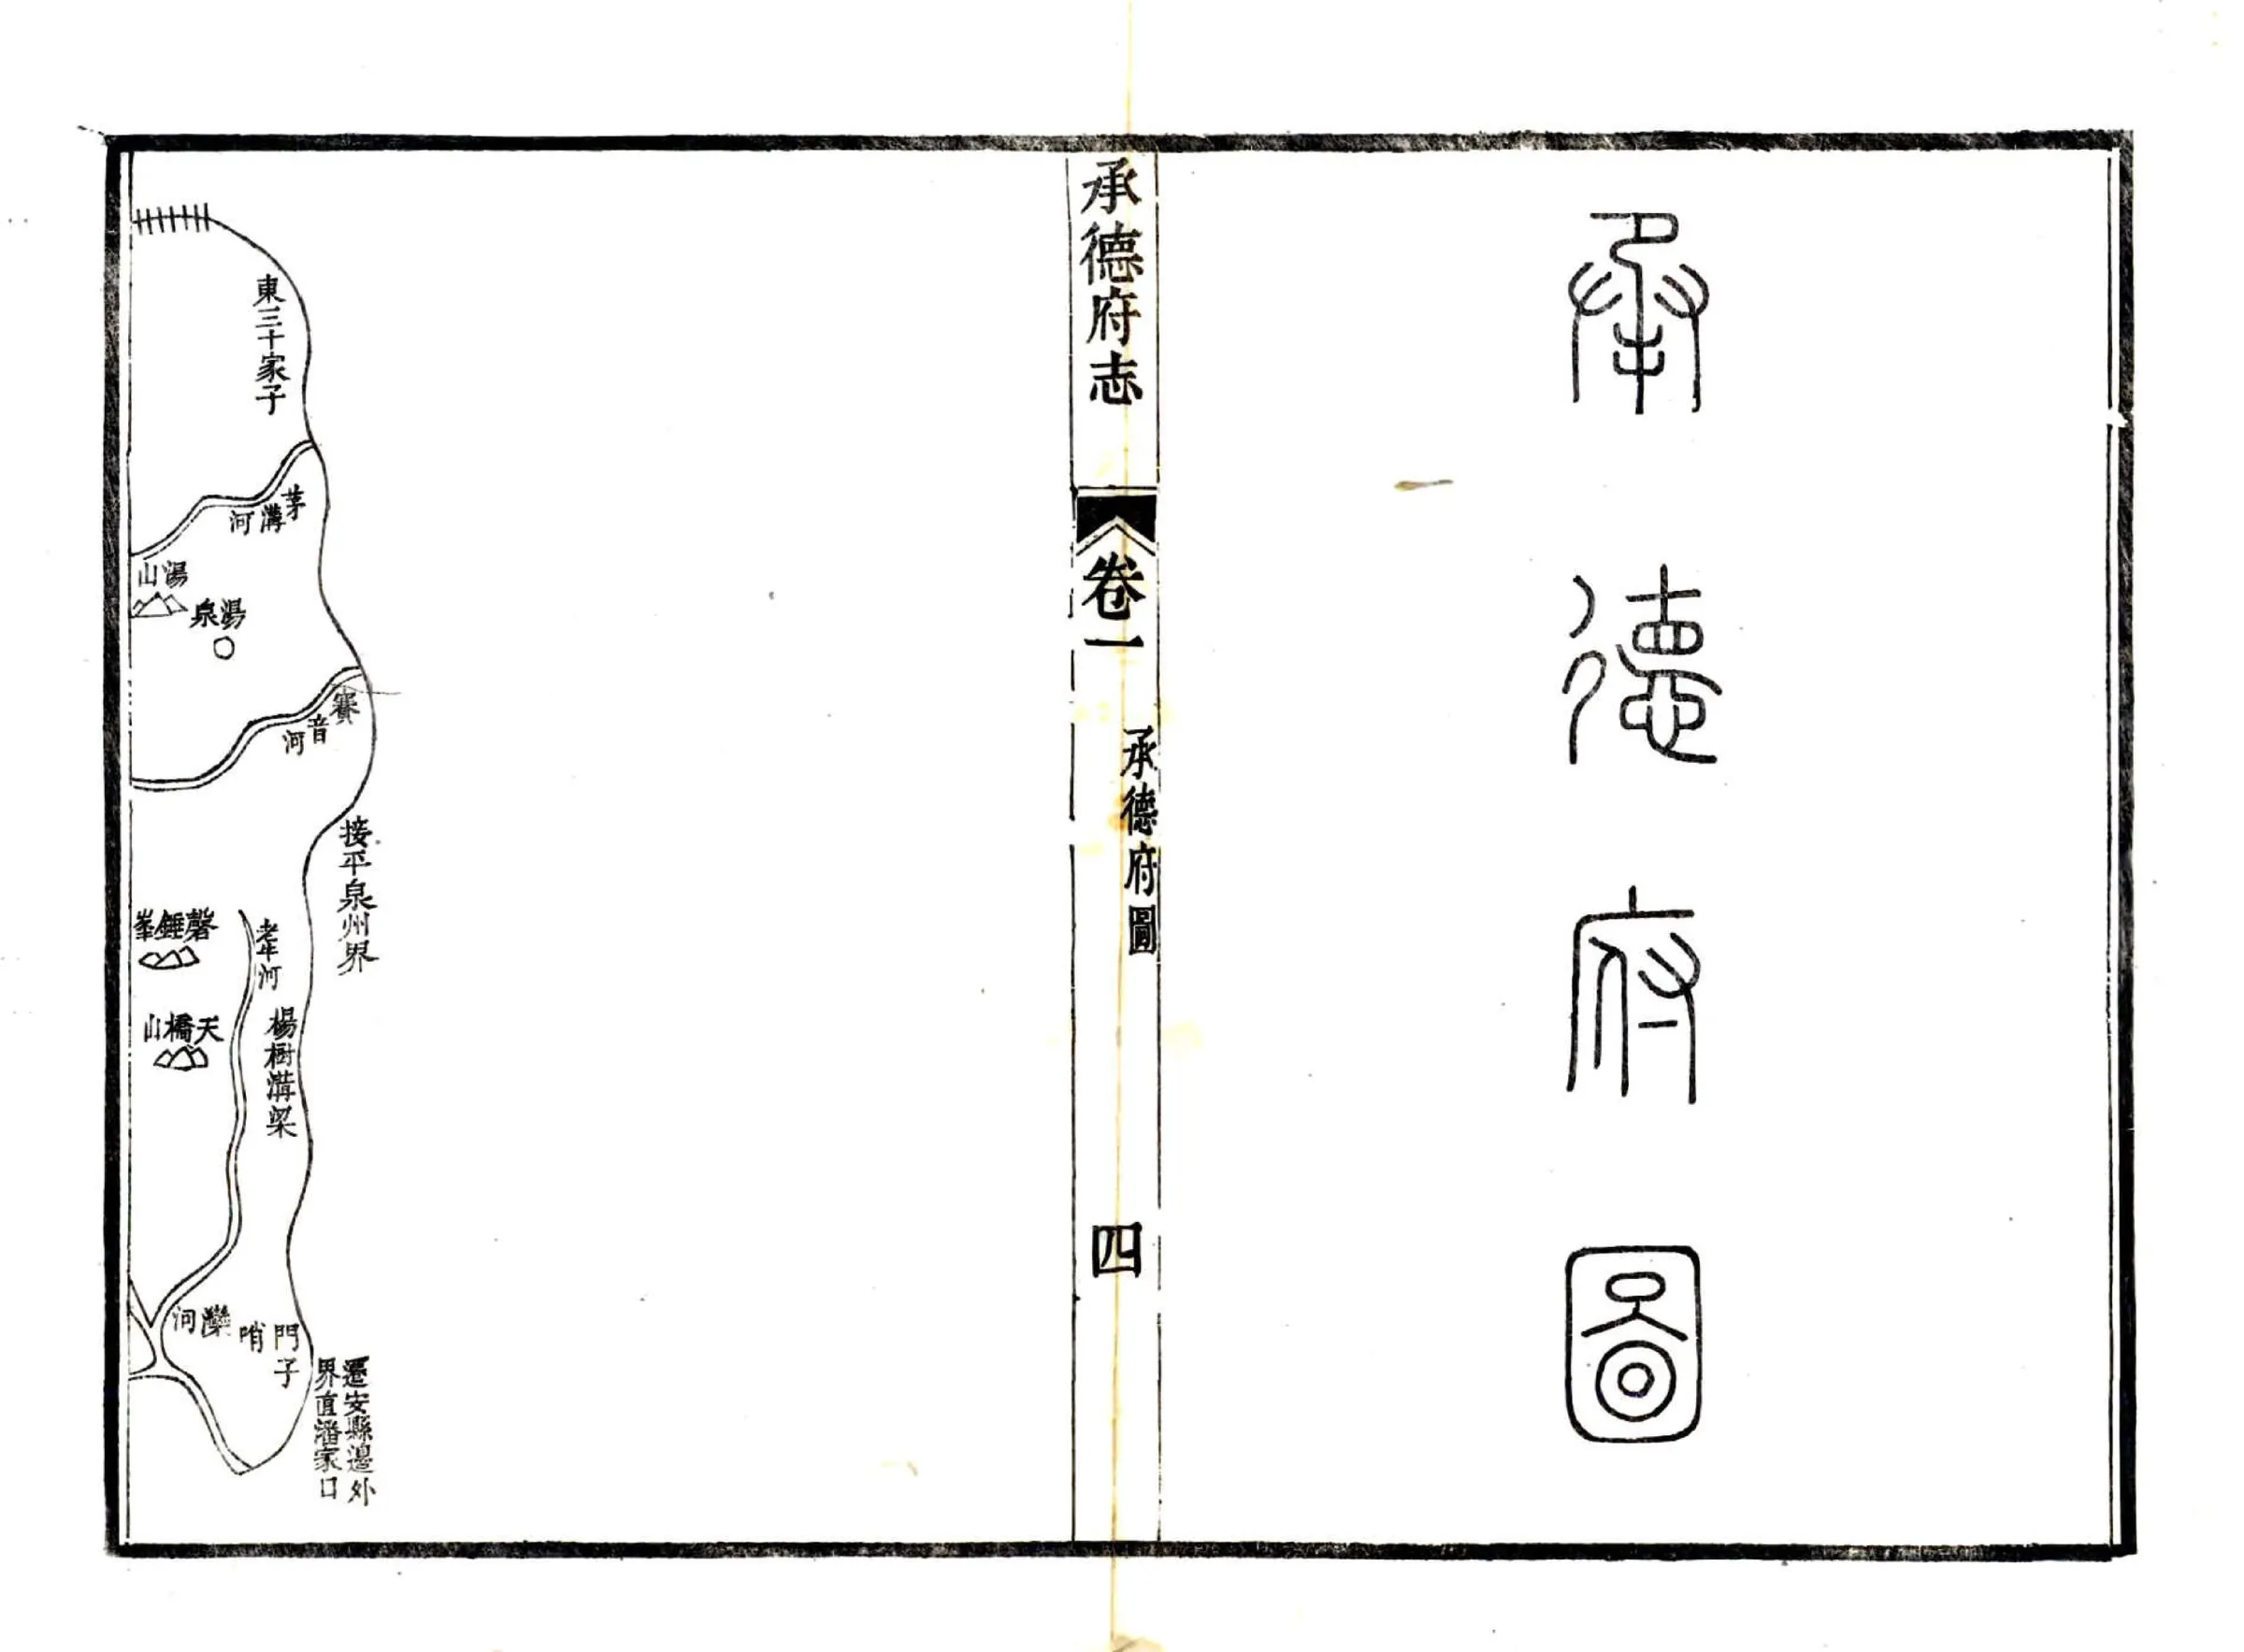 承德府圖
承德府志
卷一
承德府圖
四
東三十家子
茅溝河
湯山
湯泉
賽音河
接平泉州界
磬錘峯
老牛河
天橋山
楊樹溝梁
灤河
門子哨
遷安縣邊外
界直潘家口